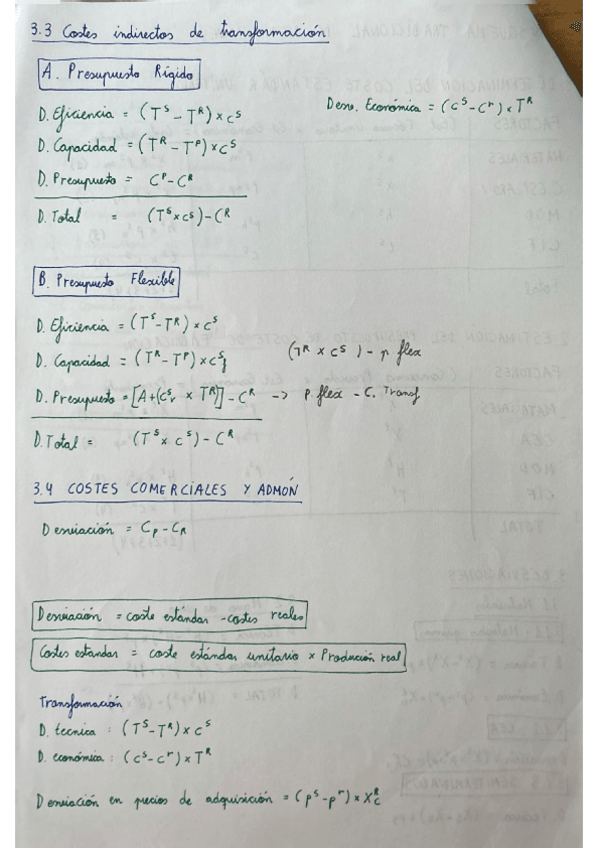 3.3 Costes indirectos de transformación
A. Presupuesto Rígido
D. Eficiencia = (T^S - T^R) × c^S
Desv. Económica = (c^S - c^r) × T^R
D. Capacidad = (T^R - T^P) × c^S
D. Presupuesto = C^P - C^R
D. Total = (T^S × c^S) - C^R
B. Presupuesto Flexible
D. Eficiencia = (T^S - T^R) × c^S
D. Capacidad = (T^R - T^P) × c^S_f
(T^R × c^S) - p flex
D. Presupuesto = [A + (c^S_v × T^R)] - C^R -> p. flex - C. Transf
D. Total = (T^S × c^S) - C^R
3.4 COSTES COMERCIALES Y ADMÓN
Desviación = C_P - C_R
Desviación = coste estándar - costes reales
Costes estandar = coste estándar unitario × Producción real
Transformación
D. técnica : (T^S - T^R) × c^S
D. económica : (c^S - c^r) × T^R
Desviación en precios de adquisición = (p^S - p^r) × X^R_c